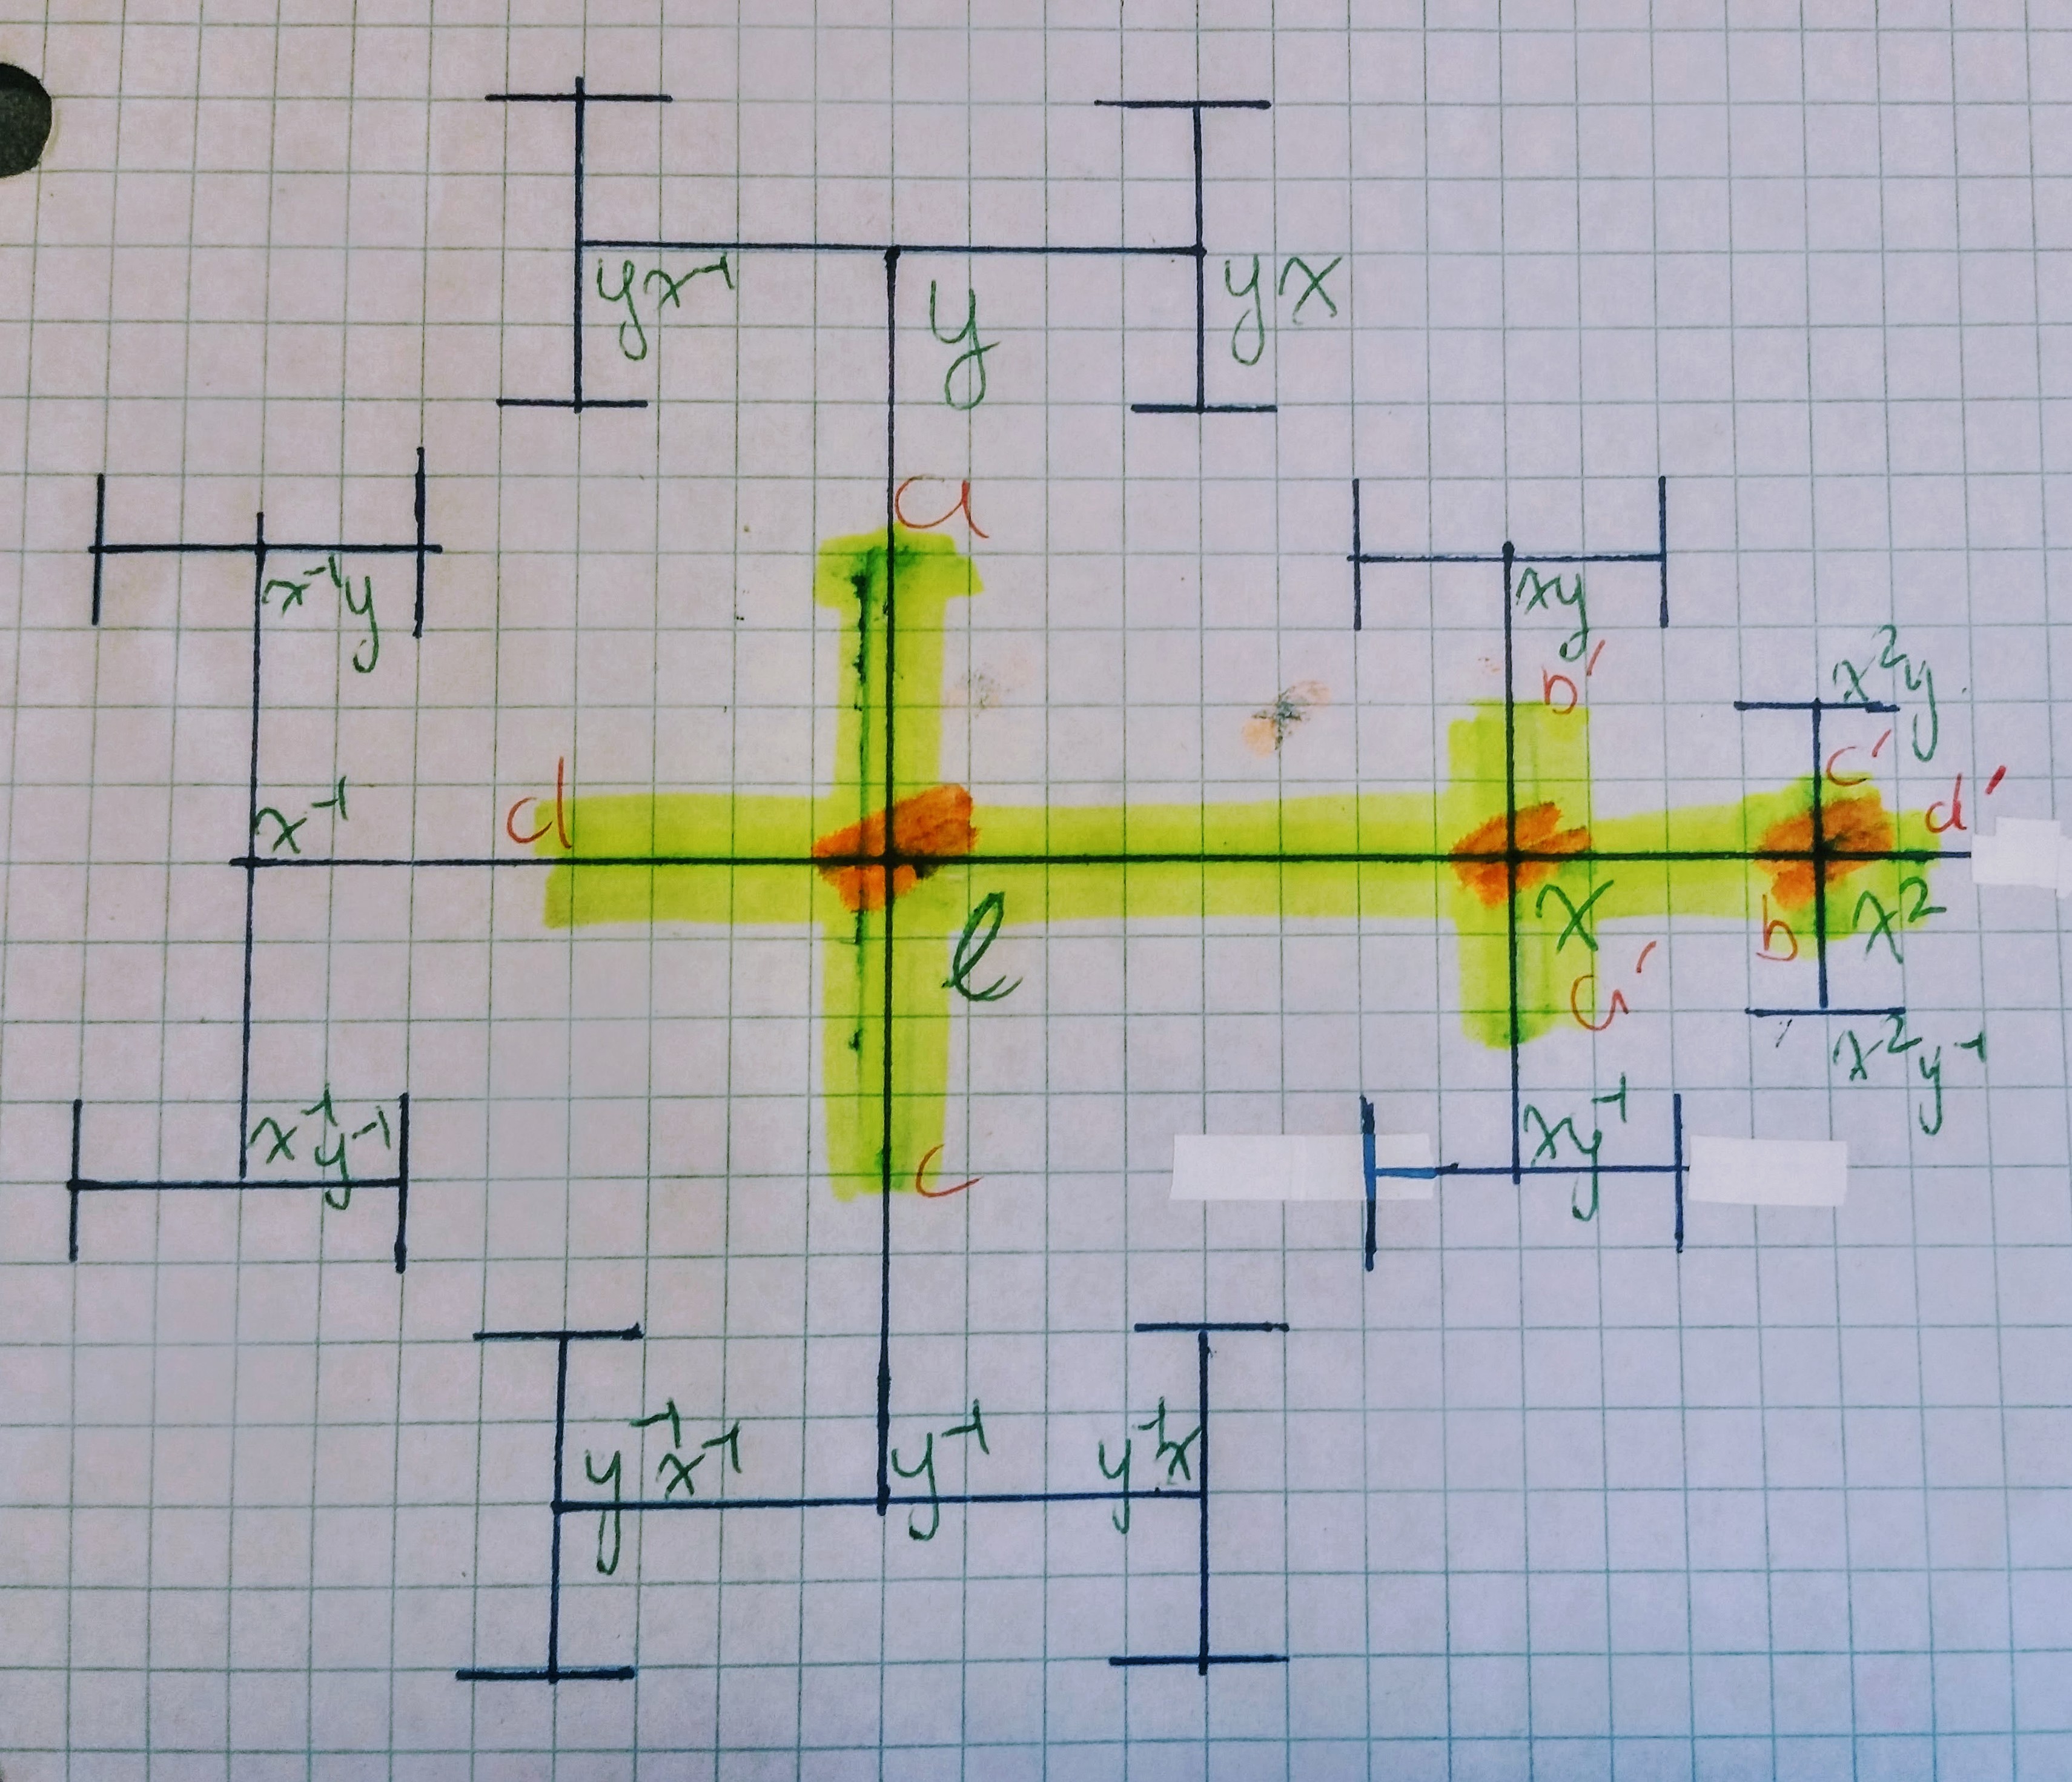 yx⁻¹
y
yx
a
x⁻¹y
xy
x²y
b'
c'
d
x⁻¹
d'
e
x
b
x²
a'
x²y⁻¹
x⁻¹y⁻¹
xy⁻¹
c
y⁻¹x⁻¹
y⁻¹
y⁻¹x